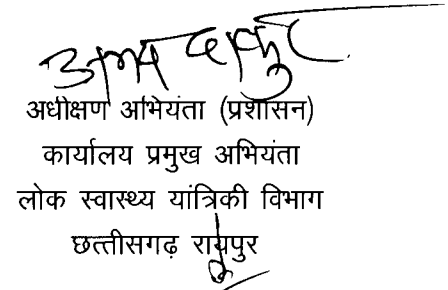 अधीक्षण अभियंता (प्रशासन)
कार्यालय प्रमुख अभियंता
लोक स्वास्थ्य यांत्रिकी विभाग
छत्तीसगढ़ रायपुर